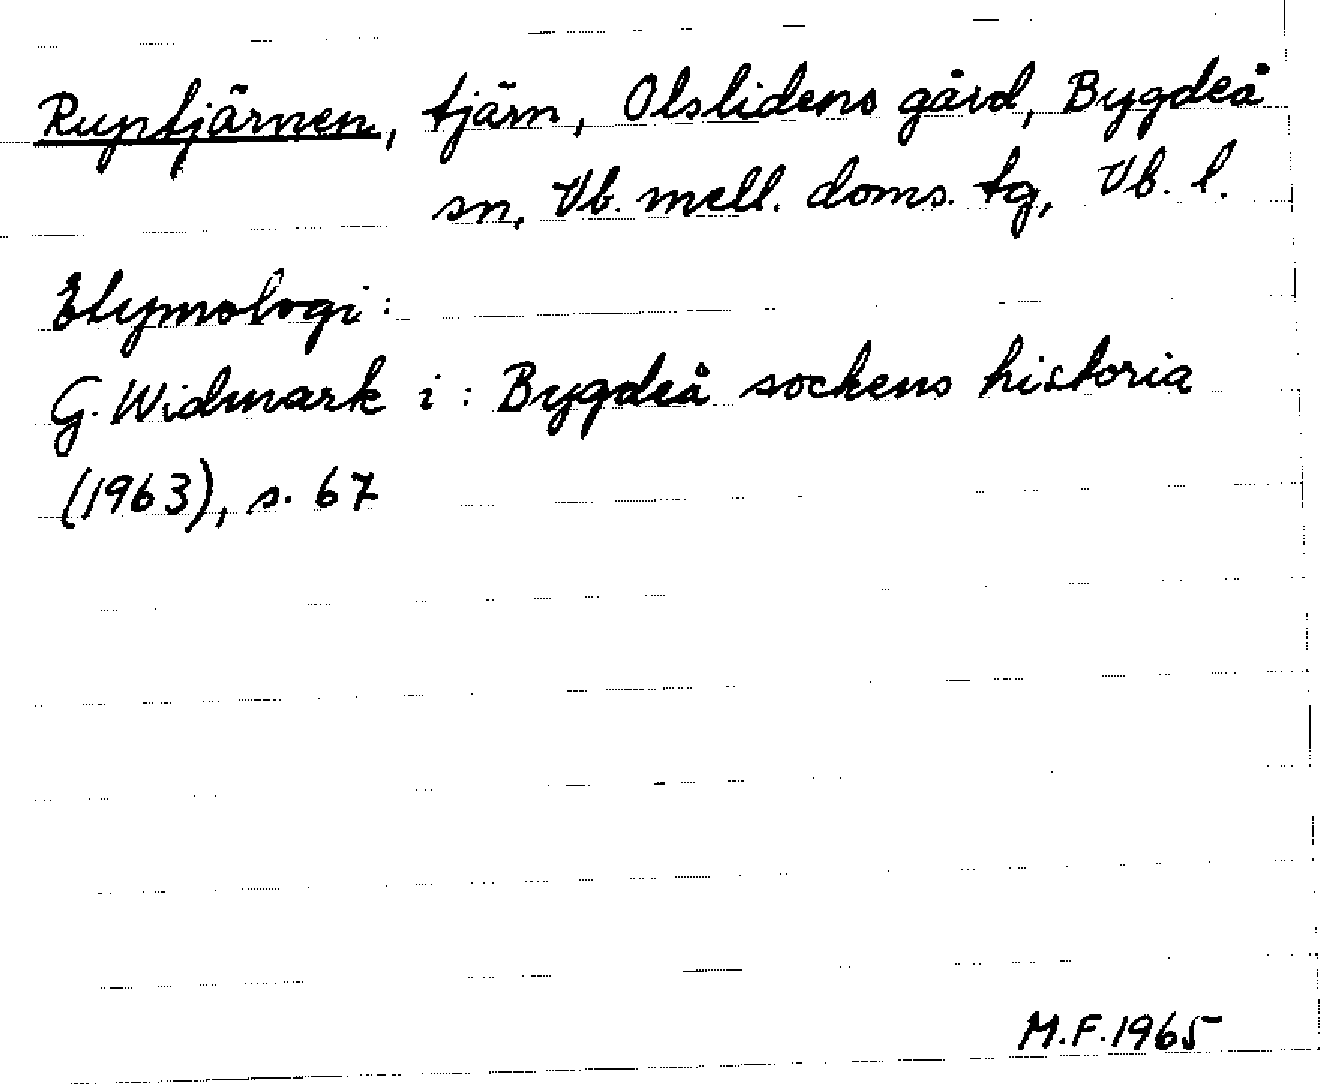 Ruptjärnen, tjärn, Olslidens gård, Bygdeå
sn, Vb. mell. doms. tg, Vb. l.
Etymologi:
G. Widmark i: Bygdeå sockens historia
(1963), s. 67
M.F. 1965